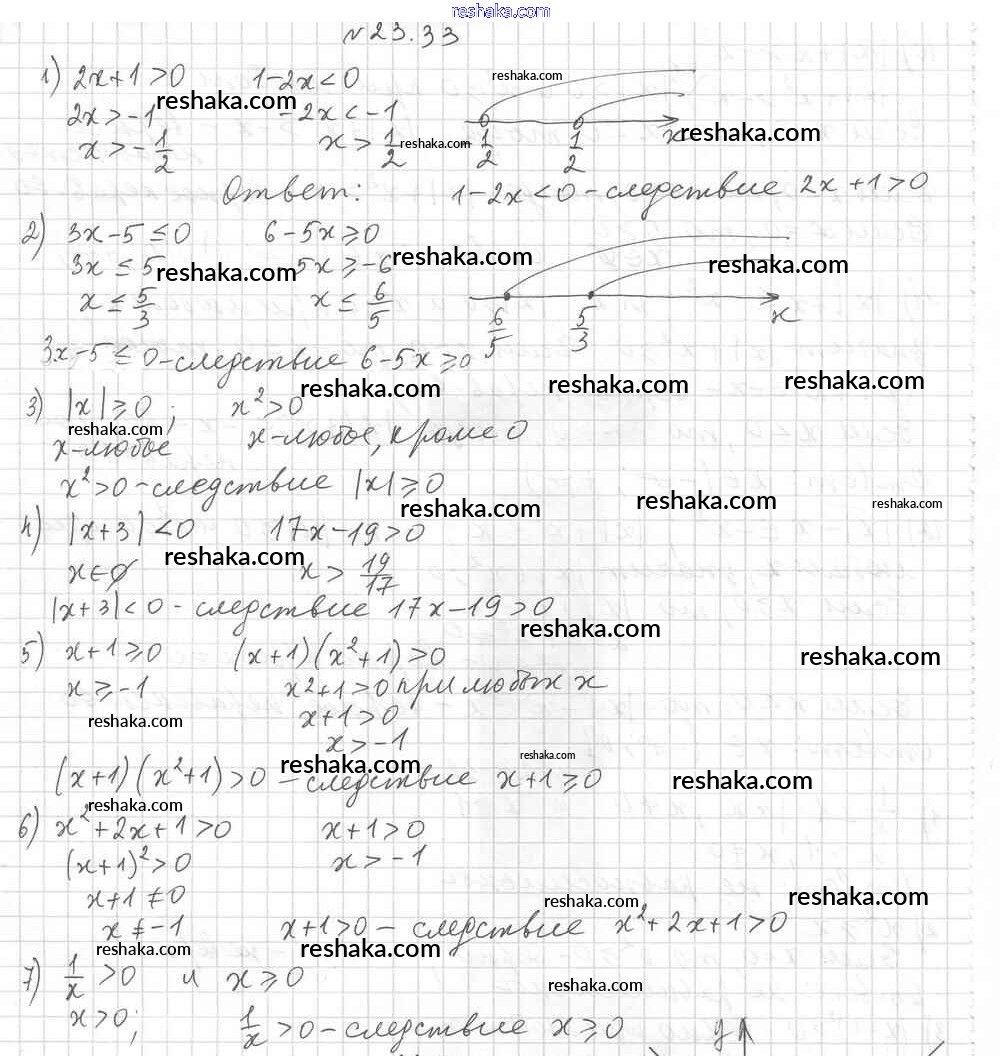 reshaka.com
№ 23.33
1) 2x+1>0 1-2x<0 reshaka.com
2x>-1 reshaka.com -2x<-1 x reshaka.com
x>-1/2 x>1/2 reshaka.com 1/2 1/2
Ответ: 1-2x<0 - следствие 2x+1>0
2) 3x-5≤0 6-5x≥0
3x≤5 reshaka.com 5x≥-6 reshaka.com reshaka.com
x≤5/3 x≤6/5 6/5 5/3 x
3x-5≤0 - следствие 6-5x≥0
reshaka.com reshaka.com reshaka.com
3) |x|≥0; x²>0
reshaka.com
x-любое x-любое, кроме 0
x²>0 - следствие |x|≥0
reshaka.com reshaka.com reshaka.com
4) |x+3|<0 17x-19>0
reshaka.com
x∈∅ x>19/17
|x+3|<0 - следствие 17x-19>0
reshaka.com
5) x+1≥0 (x+1)(x²+1)>0 reshaka.com
x≥-1 x²+1>0 при любых x
reshaka.com x+1>0
x>-1
reshaka.com reshaka.com
(x+1)(x²+1)>0 - следствие x+1≥0 reshaka.com
reshaka.com
6) x²+2x+1>0 x+1>0
(x+1)²>0 x>-1
x+1≠0 reshaka.com reshaka.com
x≠-1 x+1>0 - следствие x²+2x+1>0
reshaka.com reshaka.com
7) 1/x>0 и x≥0 reshaka.com
x>0; 1/x>0 - следствие x≥0 y